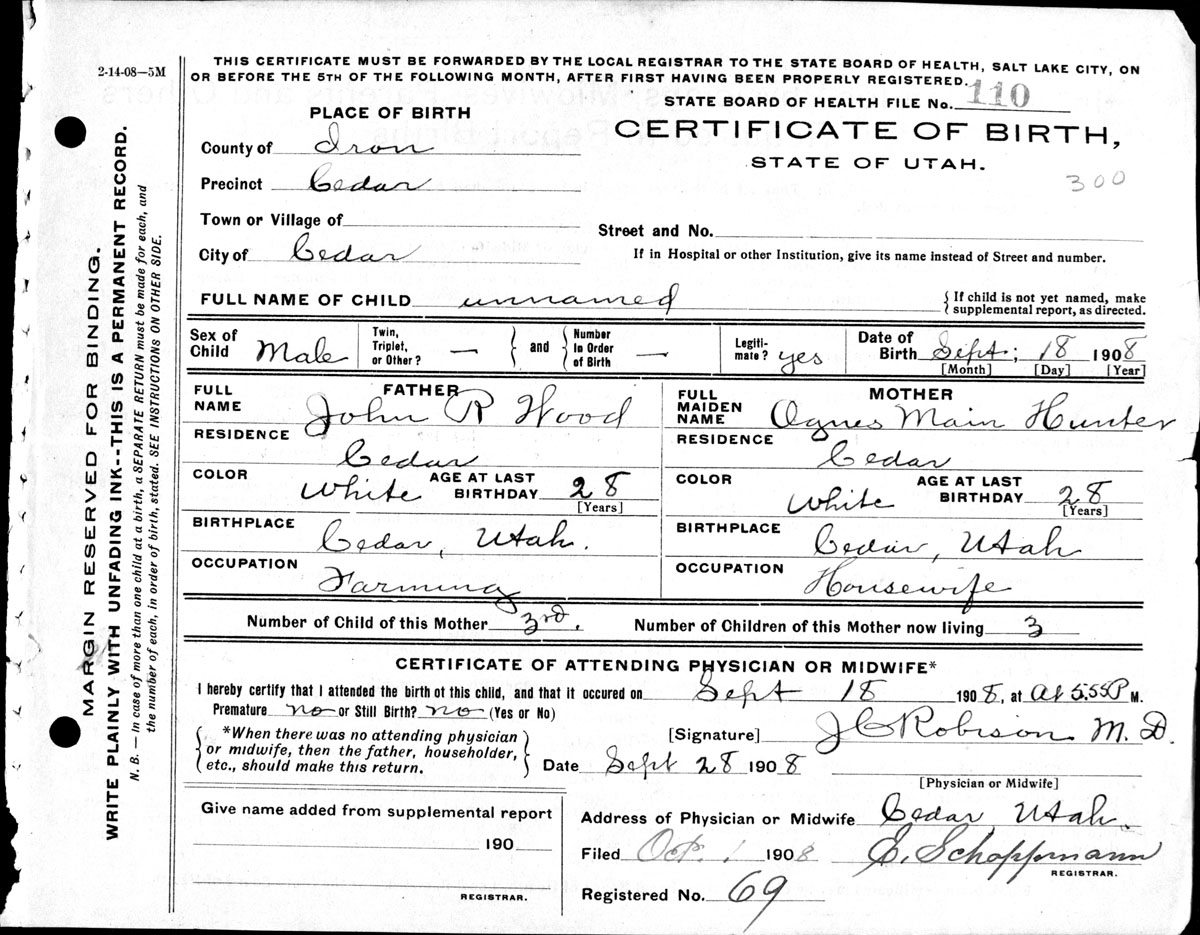 2-14-08—5M
THIS CERTIFICATE MUST BE FORWARDED BY THE LOCAL REGISTRAR TO THE STATE BOARD OF HEALTH, SALT LAKE CITY, ON
OR BEFORE THE 5TH OF THE FOLLOWING MONTH, AFTER FIRST HAVING BEEN PROPERLY REGISTERED.
STATE BOARD OF HEALTH FILE No. 110
PLACE OF BIRTH
CERTIFICATE OF BIRTH,
STATE OF UTAH.
300
County of Iron
Precinct Cedar
Town or Village of
Street and No.
City of Cedar
If in Hospital or other Institution, give its name instead of Street and number.
FULL NAME OF CHILD unnamed
{ If child is not yet named, make
supplemental report, as directed.
Sex of Child Male
Twin, Triplet, or Other? —
} and {
Number in Order of Birth —
Legiti-mate? yes
Date of Birth Sept; 18 1908
[Month] [Day] [Year]
FATHER
FULL NAME John R Wood
RESIDENCE Cedar
COLOR White AGE AT LAST BIRTHDAY 28
[Years]
BIRTHPLACE Cedar, Utah.
OCCUPATION Farming
MOTHER
FULL MAIDEN NAME Agnes Main Hunter
RESIDENCE Cedar
COLOR White AGE AT LAST BIRTHDAY 28
[Years]
BIRTHPLACE Cedar, Utah
OCCUPATION Housewife
Number of Child of this Mother 3rd. Number of Children of this Mother now living 3
CERTIFICATE OF ATTENDING PHYSICIAN OR MIDWIFE*
I hereby certify that I attended the birth of this child, and that it occured on Sept 18 1908, at At 5.55 P M.
Premature no or Still Birth? no (Yes or No)
{ *When there was no attending physician
or midwife, then the father, householder,
etc., should make this return. }
[Signature] J C Robison M.D.
Date Sept 28 1908
[Physician or Midwife]
Give name added from supplemental report
190
REGISTRAR.
Address of Physician or Midwife Cedar, Utah.
Filed Oct. 1 1908 E. Schoppmann
REGISTRAR.
Registered No. 69
MARGIN RESERVED FOR BINDING.
WRITE PLAINLY WITH UNFADING INK--THIS IS A PERMANENT RECORD.
N. B. — In case of more than one child at a birth, a SEPARATE RETURN must be made for each, and
the number of each, in order of birth, stated. SEE INSTRUCTIONS ON OTHER SIDE.